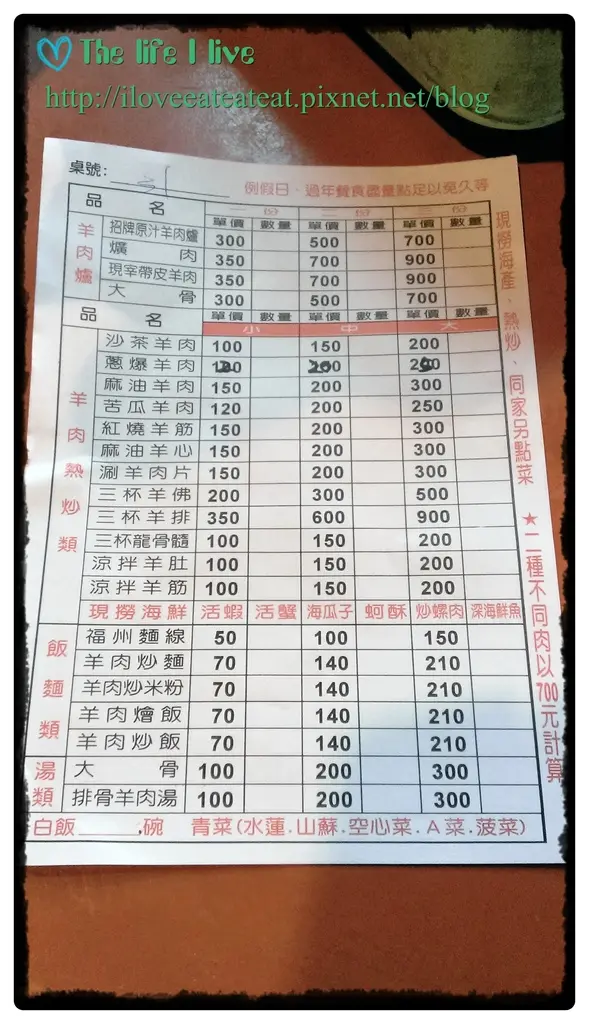 The life I live
http://iloveeateateat.pixnet.net/blog
桌號:
例假日、過年餐食盡量點足以免久等
品 名 一份 二份 三份
單價 數量 單價 數量 單價 數量
羊肉爐
招牌原汁羊肉爐 300 500 700
爌肉 350 700 900
現宰帶皮羊肉 350 700 900
大骨 300 500 700
品 名 單價 數量 單價 數量 單價 數量
小 中 大
羊肉熱炒類
沙茶羊肉 100 150 200
蔥爆羊肉
麻油羊肉 150 200 300
苦瓜羊肉 120 200 250
紅燒羊筋 150 200 300
麻油羊心 150 200 300
涮羊肉片 150 200 300
三杯羊佛 200 300 500
三杯羊排 350 600 900
三杯龍骨髓 100 150 200
涼拌羊肚 100 150 200
涼拌羊筋 100 150 200
現撈海鮮 活蝦 活蟹 海瓜子 蚵酥 炒螺肉 深海鮮魚
飯麵類
福州麵線 50 100 150
羊肉炒麵 70 140 210
羊肉炒米粉 70 140 210
羊肉燴飯 70 140 210
羊肉炒飯 70 140 210
湯類
大骨 100 200 300
排骨羊肉湯 100 200 300
白飯 碗 青菜(水蓮.山蘇.空心菜.A菜.菠菜)
現撈海產、熱炒、同家另點菜 ★二種不同肉以700元計算